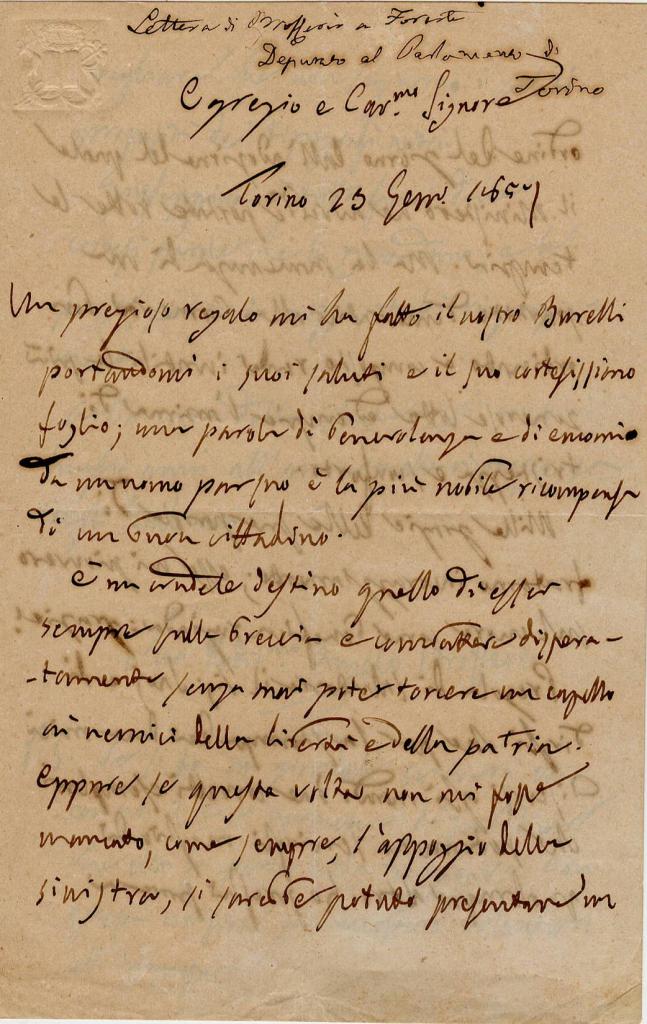 Lettera di Brofferio a Foresti
Deputato al Parlamento di
Torino
Egregio e Car.mo Signore
Torino 23 Genn. 1857
Un pregioso regalo mi ha fatto il nostro Burelli
portandomi i suoi saluti e il suo cortesissimo
foglio; una parola di benevolenza e di encomio
da un uomo par suo è la più nobile ricompensa
di un buon cittadino.
È un crudele destino quello di esser
sempre sulla breccia e combattere dispera-
-tamente senza mai poter torcere un capello
ai nemici della libertà e della patria.
Eppure se questa volta non mi fosse
mancato, come sempre, l'appoggio della
sinistra, si sarebbe potuto presentare un